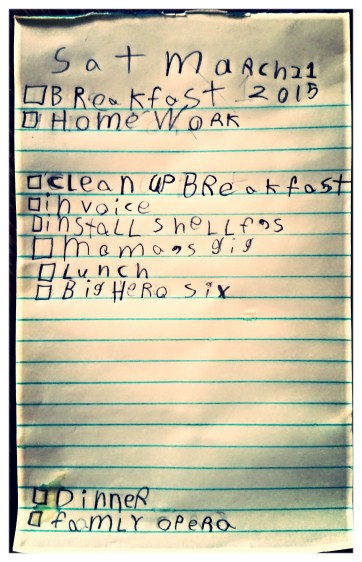 Sat MaRch21
BReakfast 2015
Home WoRK
clean up BReakfast
invoice
install shelfs
Mamas gig
Lunch
Big HeRo six
DinneR
famLy opeRa